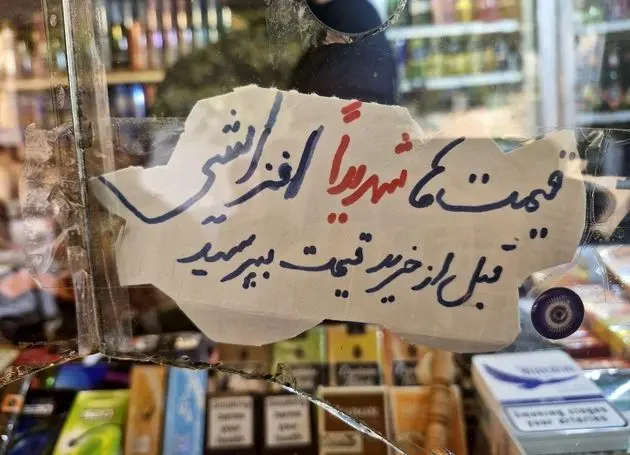 قیمت ها شدیداً افزایشی
قبل از خرید قیمت بپرسید
Smoking clogs
your arteries